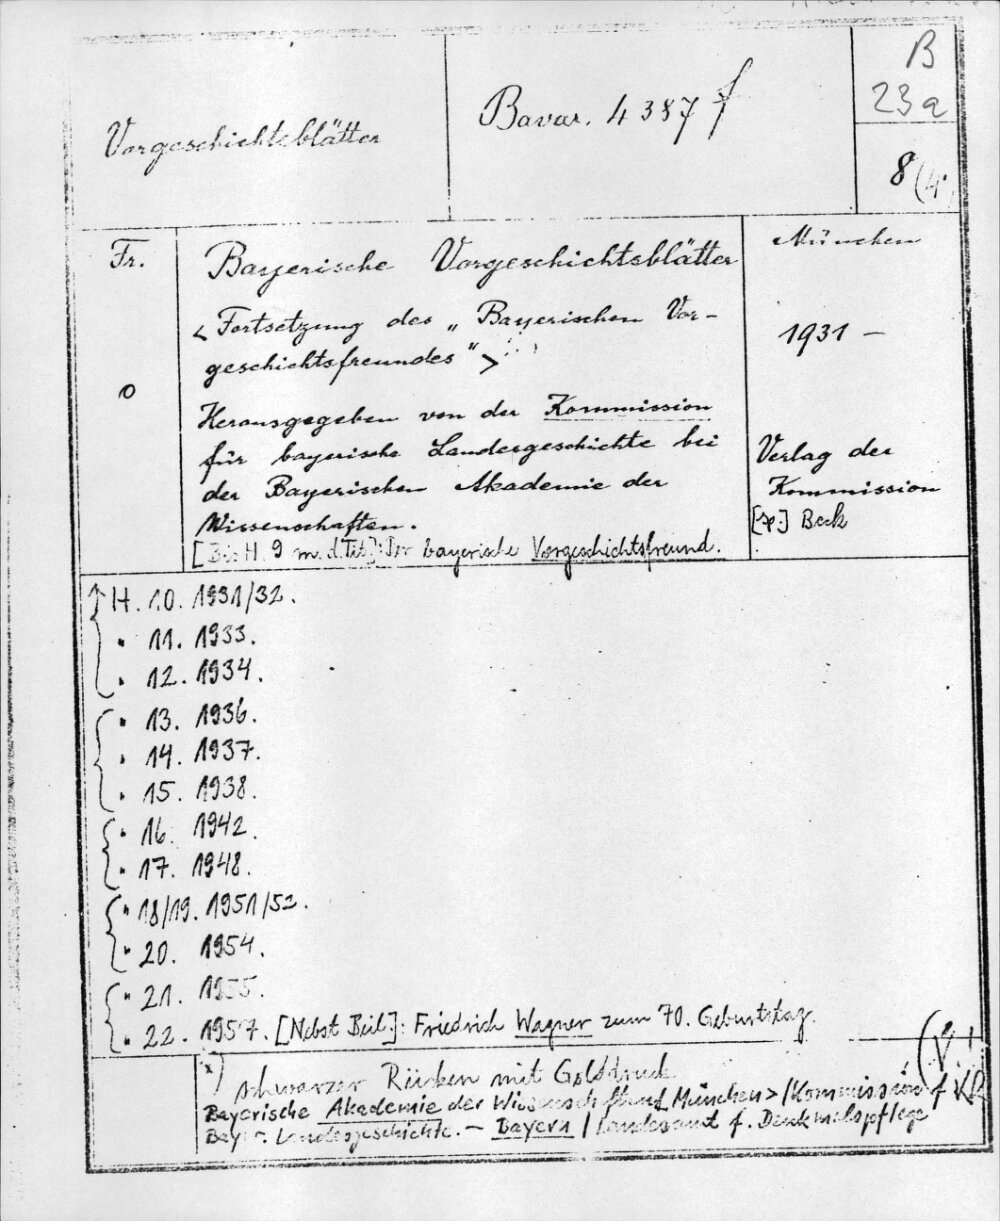 Vorgeschichtsblätter
Bavar. 4387 f
B
23a
8 (4.
Fr.
o
Bayerische Vorgeschichtsblätter
< Fortsetzung des „ Bayerischen Vor-
geschichtsfreundes " >
Herausgegeben von der Kommission
für bayerische Landesgeschichte bei
der Bayerischen Akademie der
Wissenschaften.
[Bis H. 9 m. d. Tit.]: Der bayerische Vorgeschichtsfreund.
München
1931 –
Verlag der
Kommission
Beck
H. 10. 1931/32.
" 11. 1933.
" 12. 1934.
" 13. 1936.
" 14. 1937.
" 15. 1938.
" 16. 1942.
" 17. 1948.
" 18/19. 1951/52.
" 20. 1954.
" 21. 1955.
" 22. 1957. [Nebst Beil.]: Friedrich Wagner zum 70. Geburtstag.
x) schwarzer Rücken mit Golddruck
Bayerische Akademie der Wissenschften < München > / Kommission f.
Bayer. Landesgeschichte. – Bayern / Landesamt f. Denkmalspflege